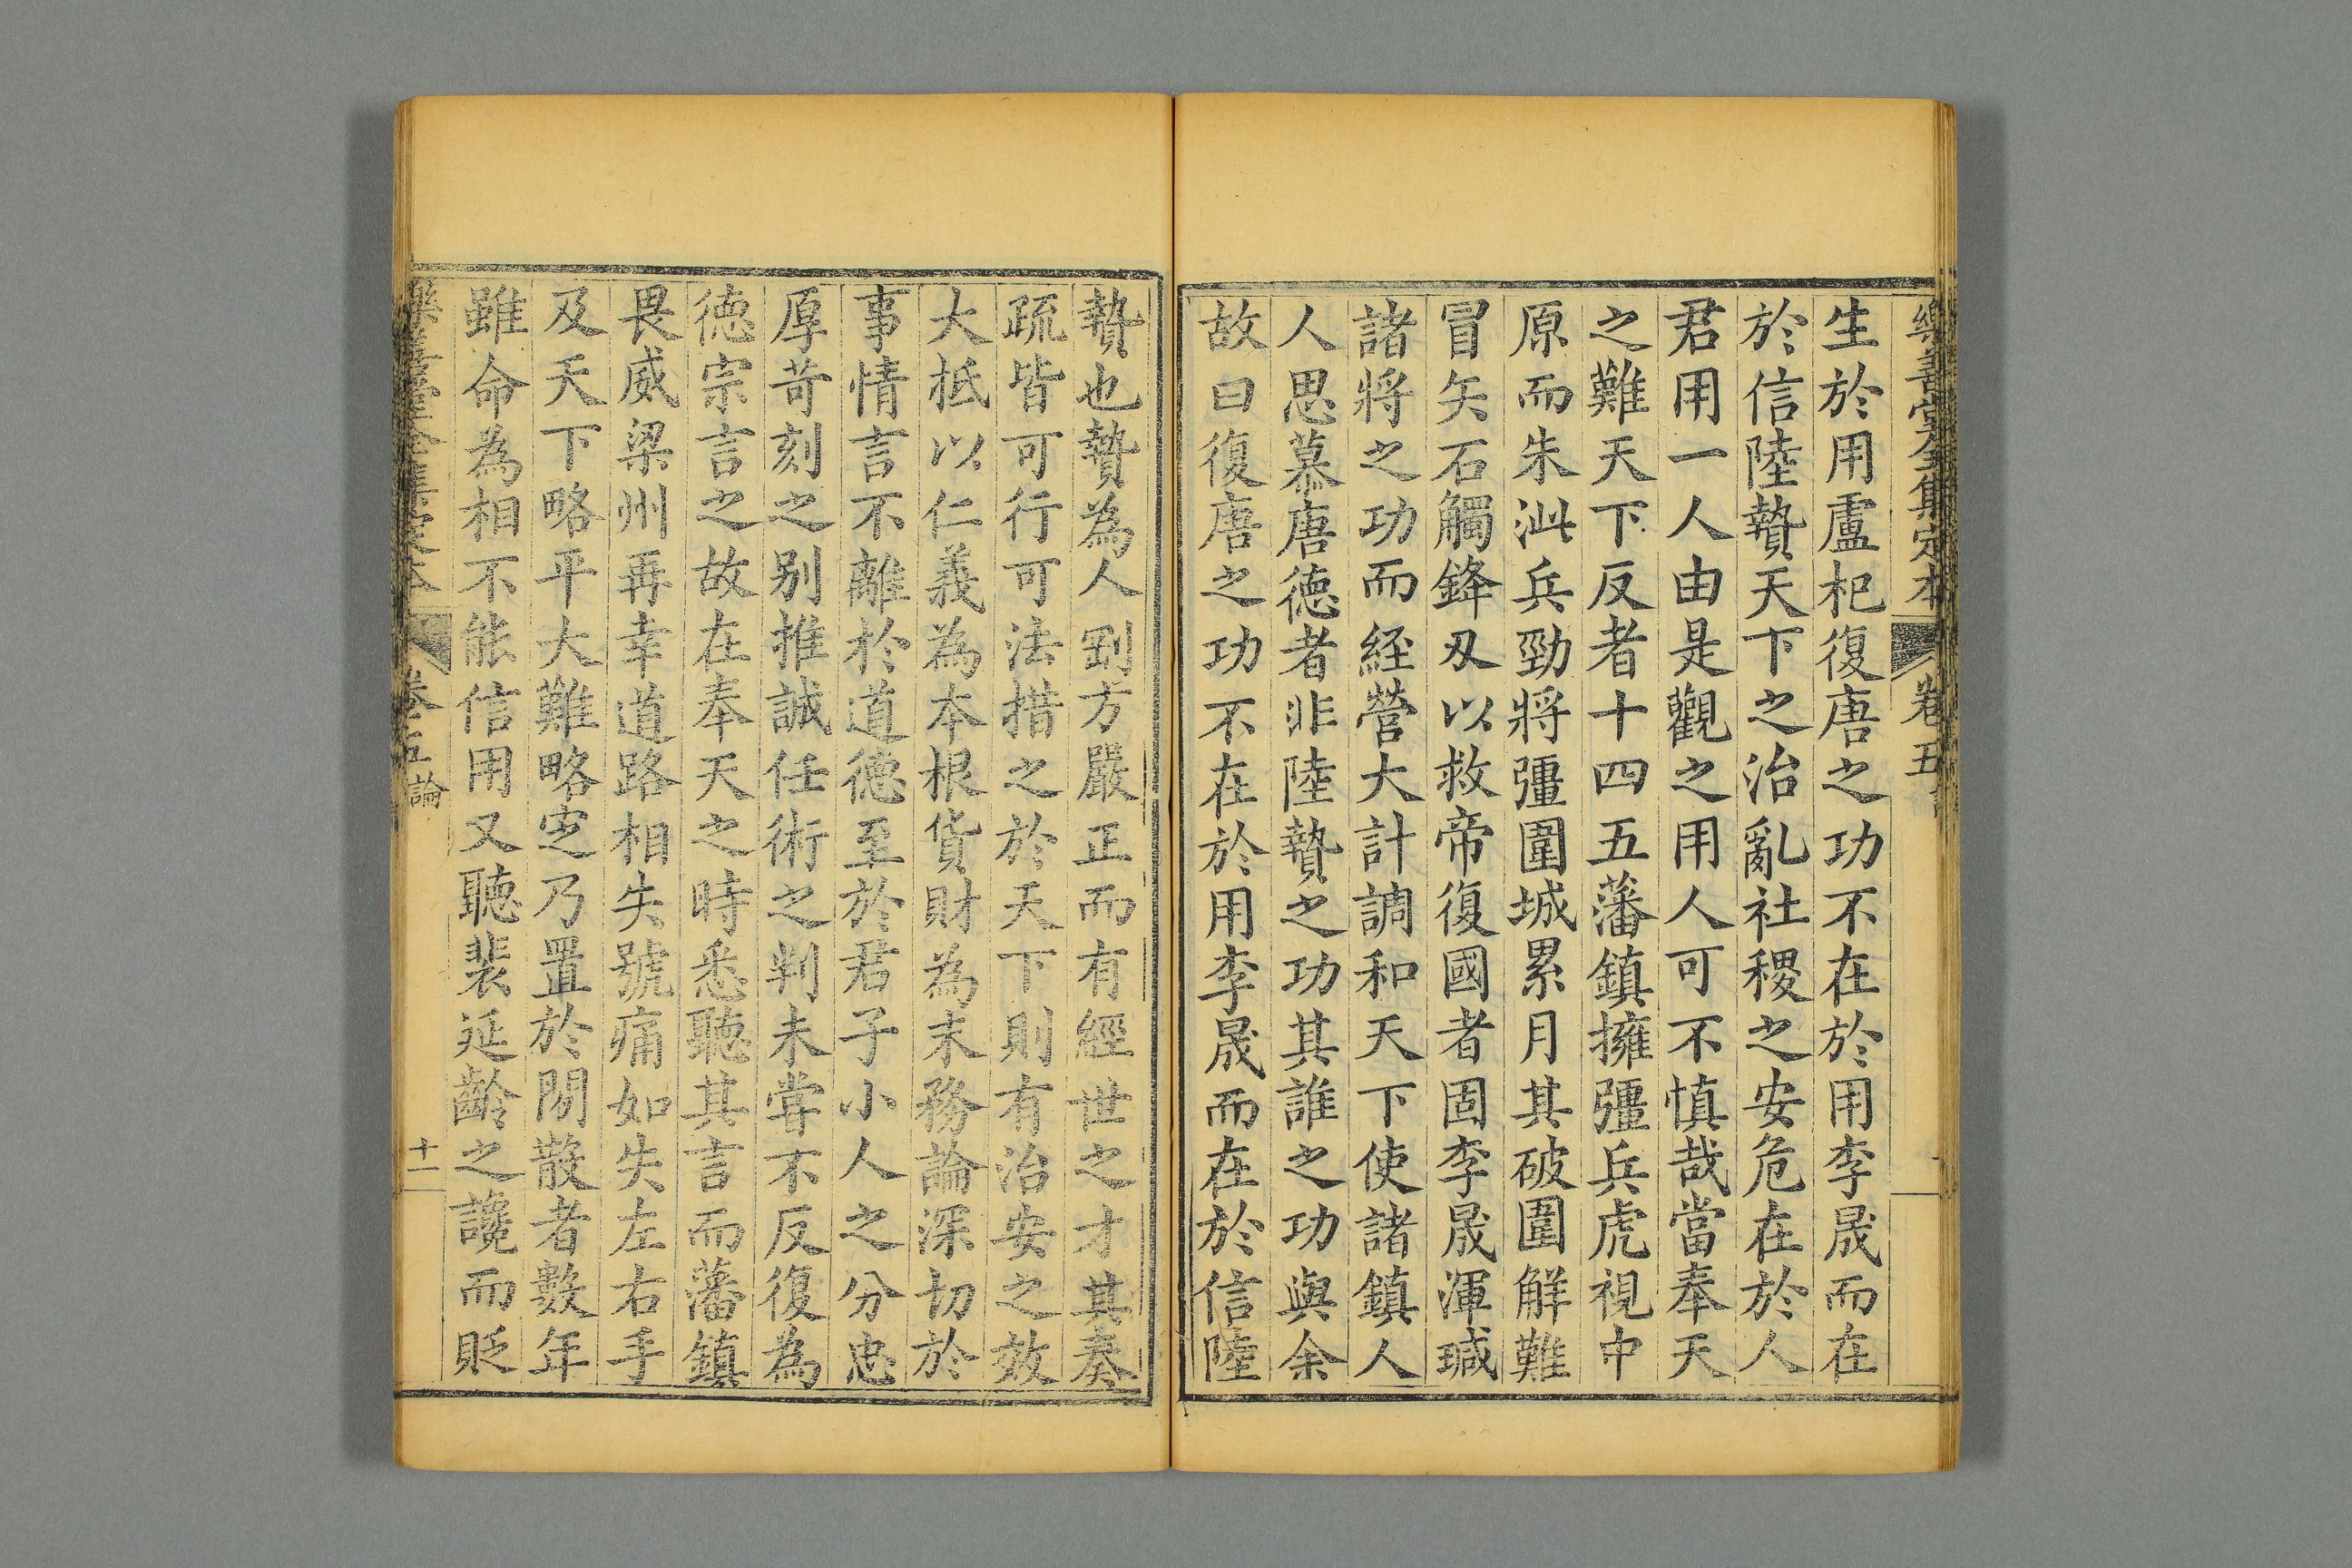 樂善堂全集定本 卷五
生於用盧杞復唐之功不在於用李晟而在
於信陸贄天下之治亂社稷之安危在於人
君用一人由是觀之用人可不慎哉當奉天
之難天下反者十四五藩鎮擁彊兵虎視中
原而朱泚兵勁將彊圍城累月其破圍解難
冒矢石觸鋒刃以救帝復國者固李晟渾瑊
諸將之功而經營大計調和天下使諸鎮人
人思慕唐德者非陸贄之功其誰之功與余
故曰復唐之功不在於用李晟而在於信陸
贄也贄為人剛方嚴正而有經世之才其奏
疏皆可行可法措之於天下則有治安之效
大抵以仁義為本根貨財為末務論深切於
事情言不離於道德至於君子小人之分忠
厚苛刻之別推誠任術之判未嘗不反復為
德宗言之故在奉天之時悉聽其言而藩鎮
畏威梁州再幸道路相失號痛如失左右手
及天下略平大難略定乃置於閒散者數年
雖命為相不能信用又聽裴延齡之讒而貶
樂善堂全集定本 卷五 論 十一